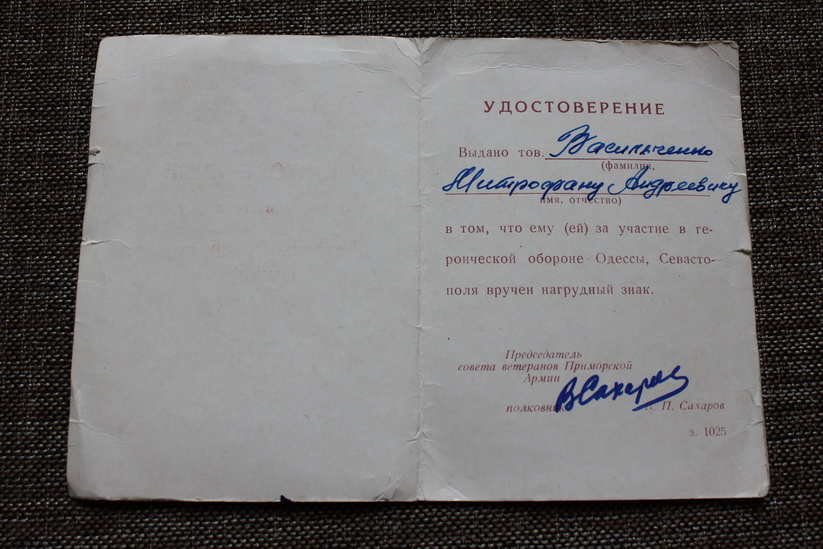 УДОСТОВЕРЕНИЕ
Выдано тов. Васильченко
(фамилия,
Митрофану Андреевичу
имя, отчество)
в том, что ему (ей) за участие в ге-
роической обороне Одессы, Севасто-
поля вручен нагрудный знак.
Председатель
совета ветеранов Приморской
Армии
ВСахаров
полковник П. Сахаров
з. 1025